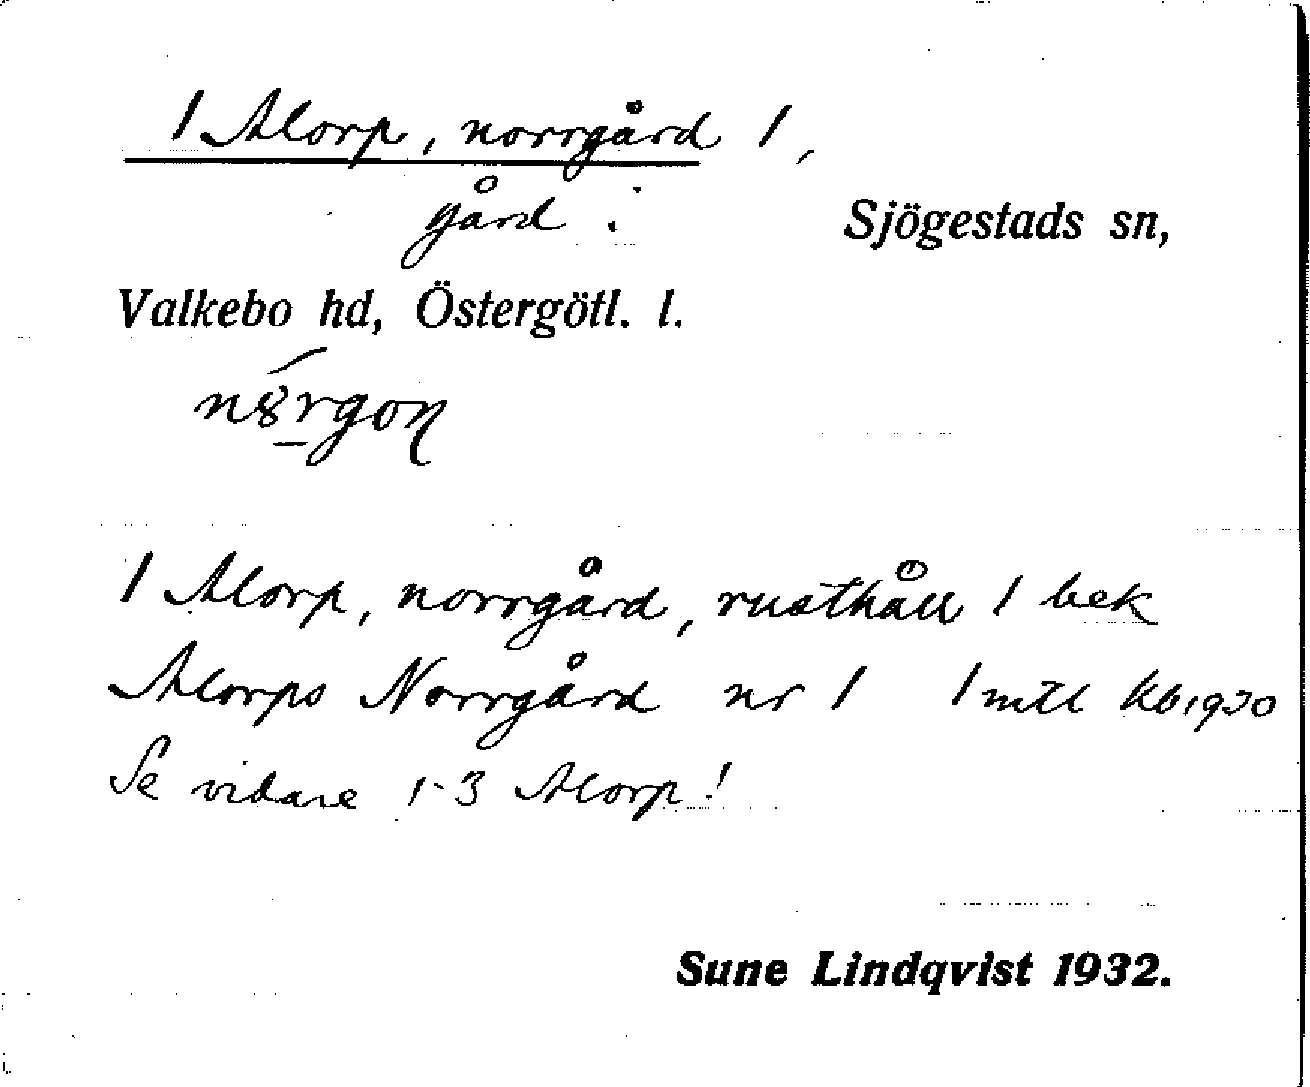 1 Alorp, norrgård 1,
gård :
Sjögestads sn,
Valkebo hd, Östergötl. l.
1 Alorp, norrgård, rusthåll 1 bek
Alorps Norrgård nr 1 1 mtl kb 1930
Se vidare 1-3 Alorp!
Sune Lindqvist 1932.